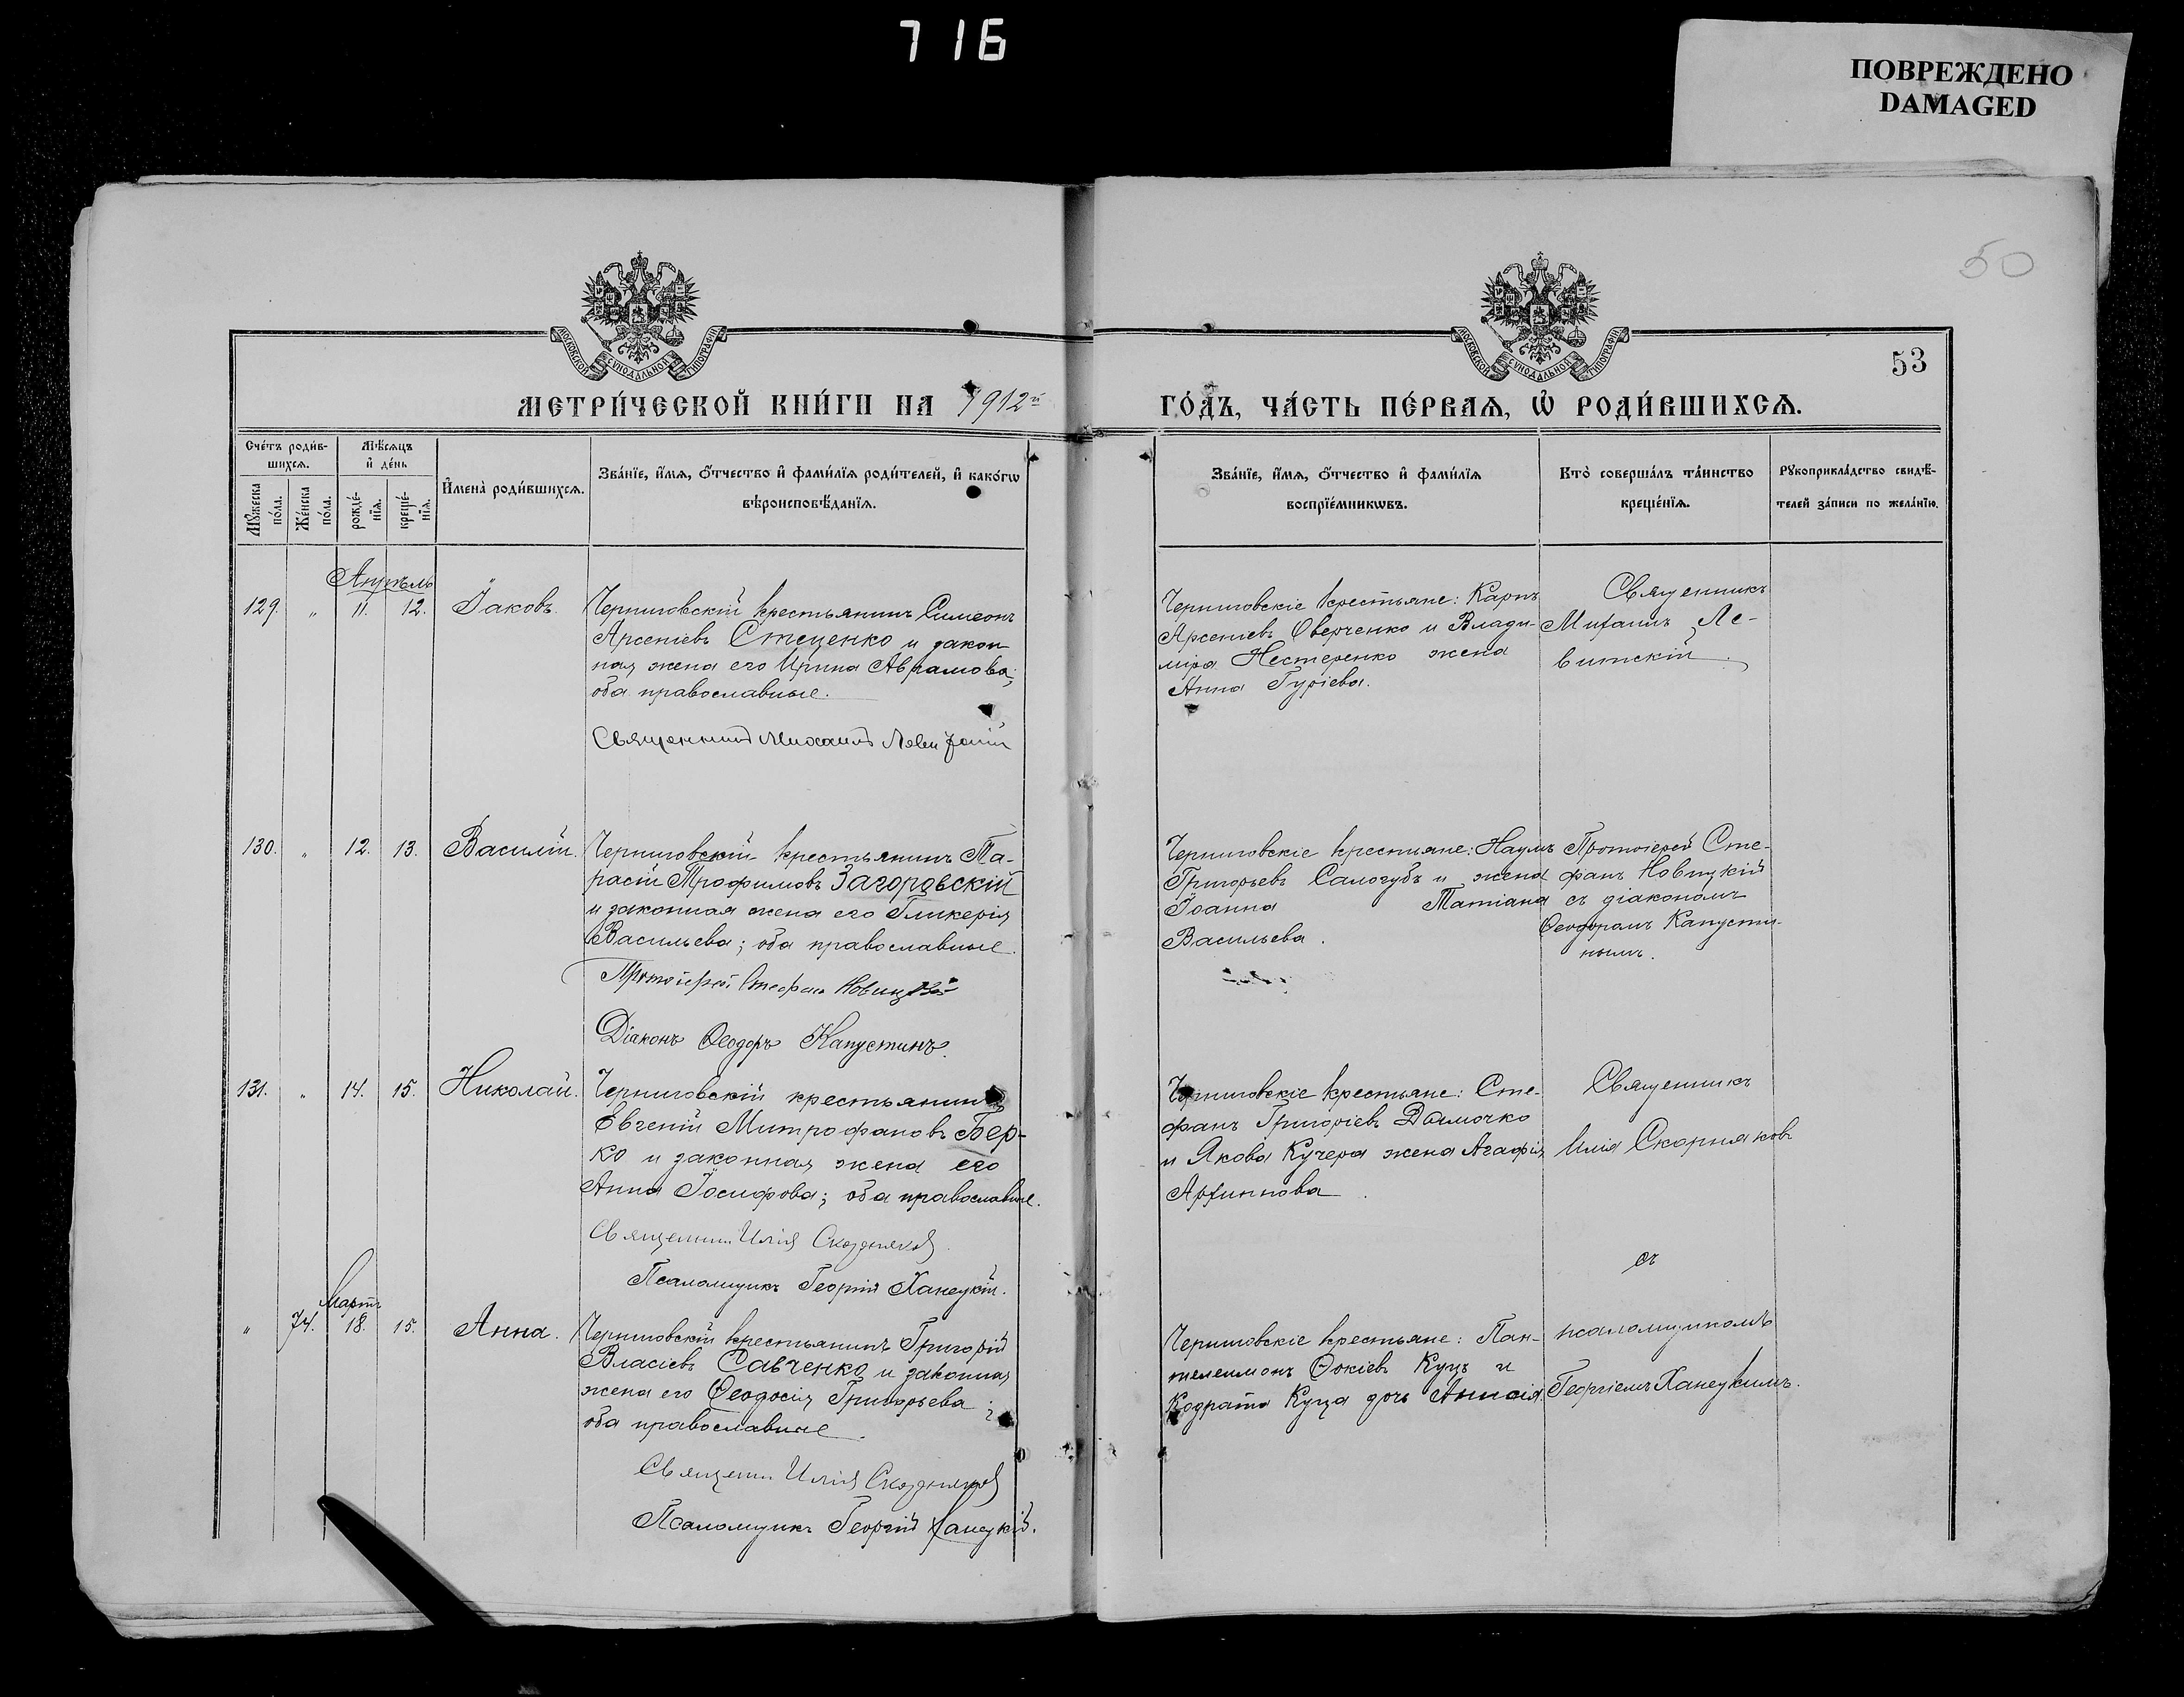 716
ПОВРЕЖДЕНО
DAMAGED
50
53
МОСКОВСКОЙ СѴНОДАЛЬНОЙ ТИПОГРАФІИ
МОСКОВСКОЙ СѴНОДАЛЬНОЙ ТИПОГРАФІИ
МЕТРИ́ЧЕСКОЙ КНИ́ГИ НА 1912й
ГО́ДЪ, ЧА́СТЬ ПЕ́РВАѦ, Ѡ РОДИ́ВШИХСѦ.
Сче́тъ роди́в-
шихсѧ.
Мѣ́сѧцъ
и҆ де́нь
И҆мена̀ роди́вшихсѧ.
Зва́нїе, и҆́мѧ, ѻ҆́тчество и҆ фами́лїѧ роди́телей, и҆ како́гѡ
вѣроисповѣ́данїѧ.
Мꙋ́жеска
по́ла.
Же́нска
по́ла.
рожде́-
нїѧ.
креще́-
нїѧ.
Зва́нїе, и҆́мѧ, ѻ҆́тчество и҆ фами́лїѧ
воспрїе́мникѡвъ.
Кто̀ соверша́лъ та́инство
креще́нїѧ.
Рꙋкоприкла́дство свидѣ́-
телей за́писи по жела́нїю.
Апрѣль
129. " 11. 12. Іаковъ.
Черниговскій крестьянинъ Симеонъ
Арсеніевъ Стеценко и закон
ная жена его Ирина Аврамова;
оба православные.
Священникъ Михаилъ Левитскій
Черниговскіе крестьяне: Карпъ
Арсеніевъ Оверченко и Влади-
міра Нестеренко жена
Анна Гуріева.
Священникъ
Михаилъ Ле-
витскій.
130. " 12. 13. Василій.
Черниговскій крестьянинъ Та-
расій Трофимовъ Загоровскій
и законная жена его Гликерія
Васильева; оба православные.
Протоіерей Стефанъ Новицкій
Діаконъ Ѳеодоръ Капустинъ.
Черниговскіе крестьяне: Наумъ
Григорьевъ Салогубъ и жена
Іоанна Татіана
Васильева.
Протоіерей Сте-
фанъ Новицкій
съ діакономъ
Ѳеодоромъ Капусти-
нымъ.
131. " 14. 15. Николай.
Черниговскій крестьянинъ
Евгеній Митрофановъ Бер-
ко и законная жена его
Анна Іосифова; оба православные.
Священникъ Илія Скорняковъ
Псаломщикъ Георгій Ханецкій.
Черниговскіе крестьяне: Сте-
фанъ Григоріевъ Домочко
и Якова Кучера жена Агафія
Архиппова
Священникъ
Илія Скорняковъ
съ
Мартъ
" 74. 18. 15. Анна.
Черниговскій крестьянинъ Григорій
Власіевъ Савченко и законная
жена его Ѳеодосія Григорьева;
оба православные.
Священ. Илія Скорняковъ
Псаломщикъ Георгій Ханецкій.
Черниговскіе крестьяне: Пан-
телеимонъ Ѳокіевъ Куцъ и
Кодрата Куца дочь Анисія.
псаломщикомъ
Георгіемъ Ханецкимъ.